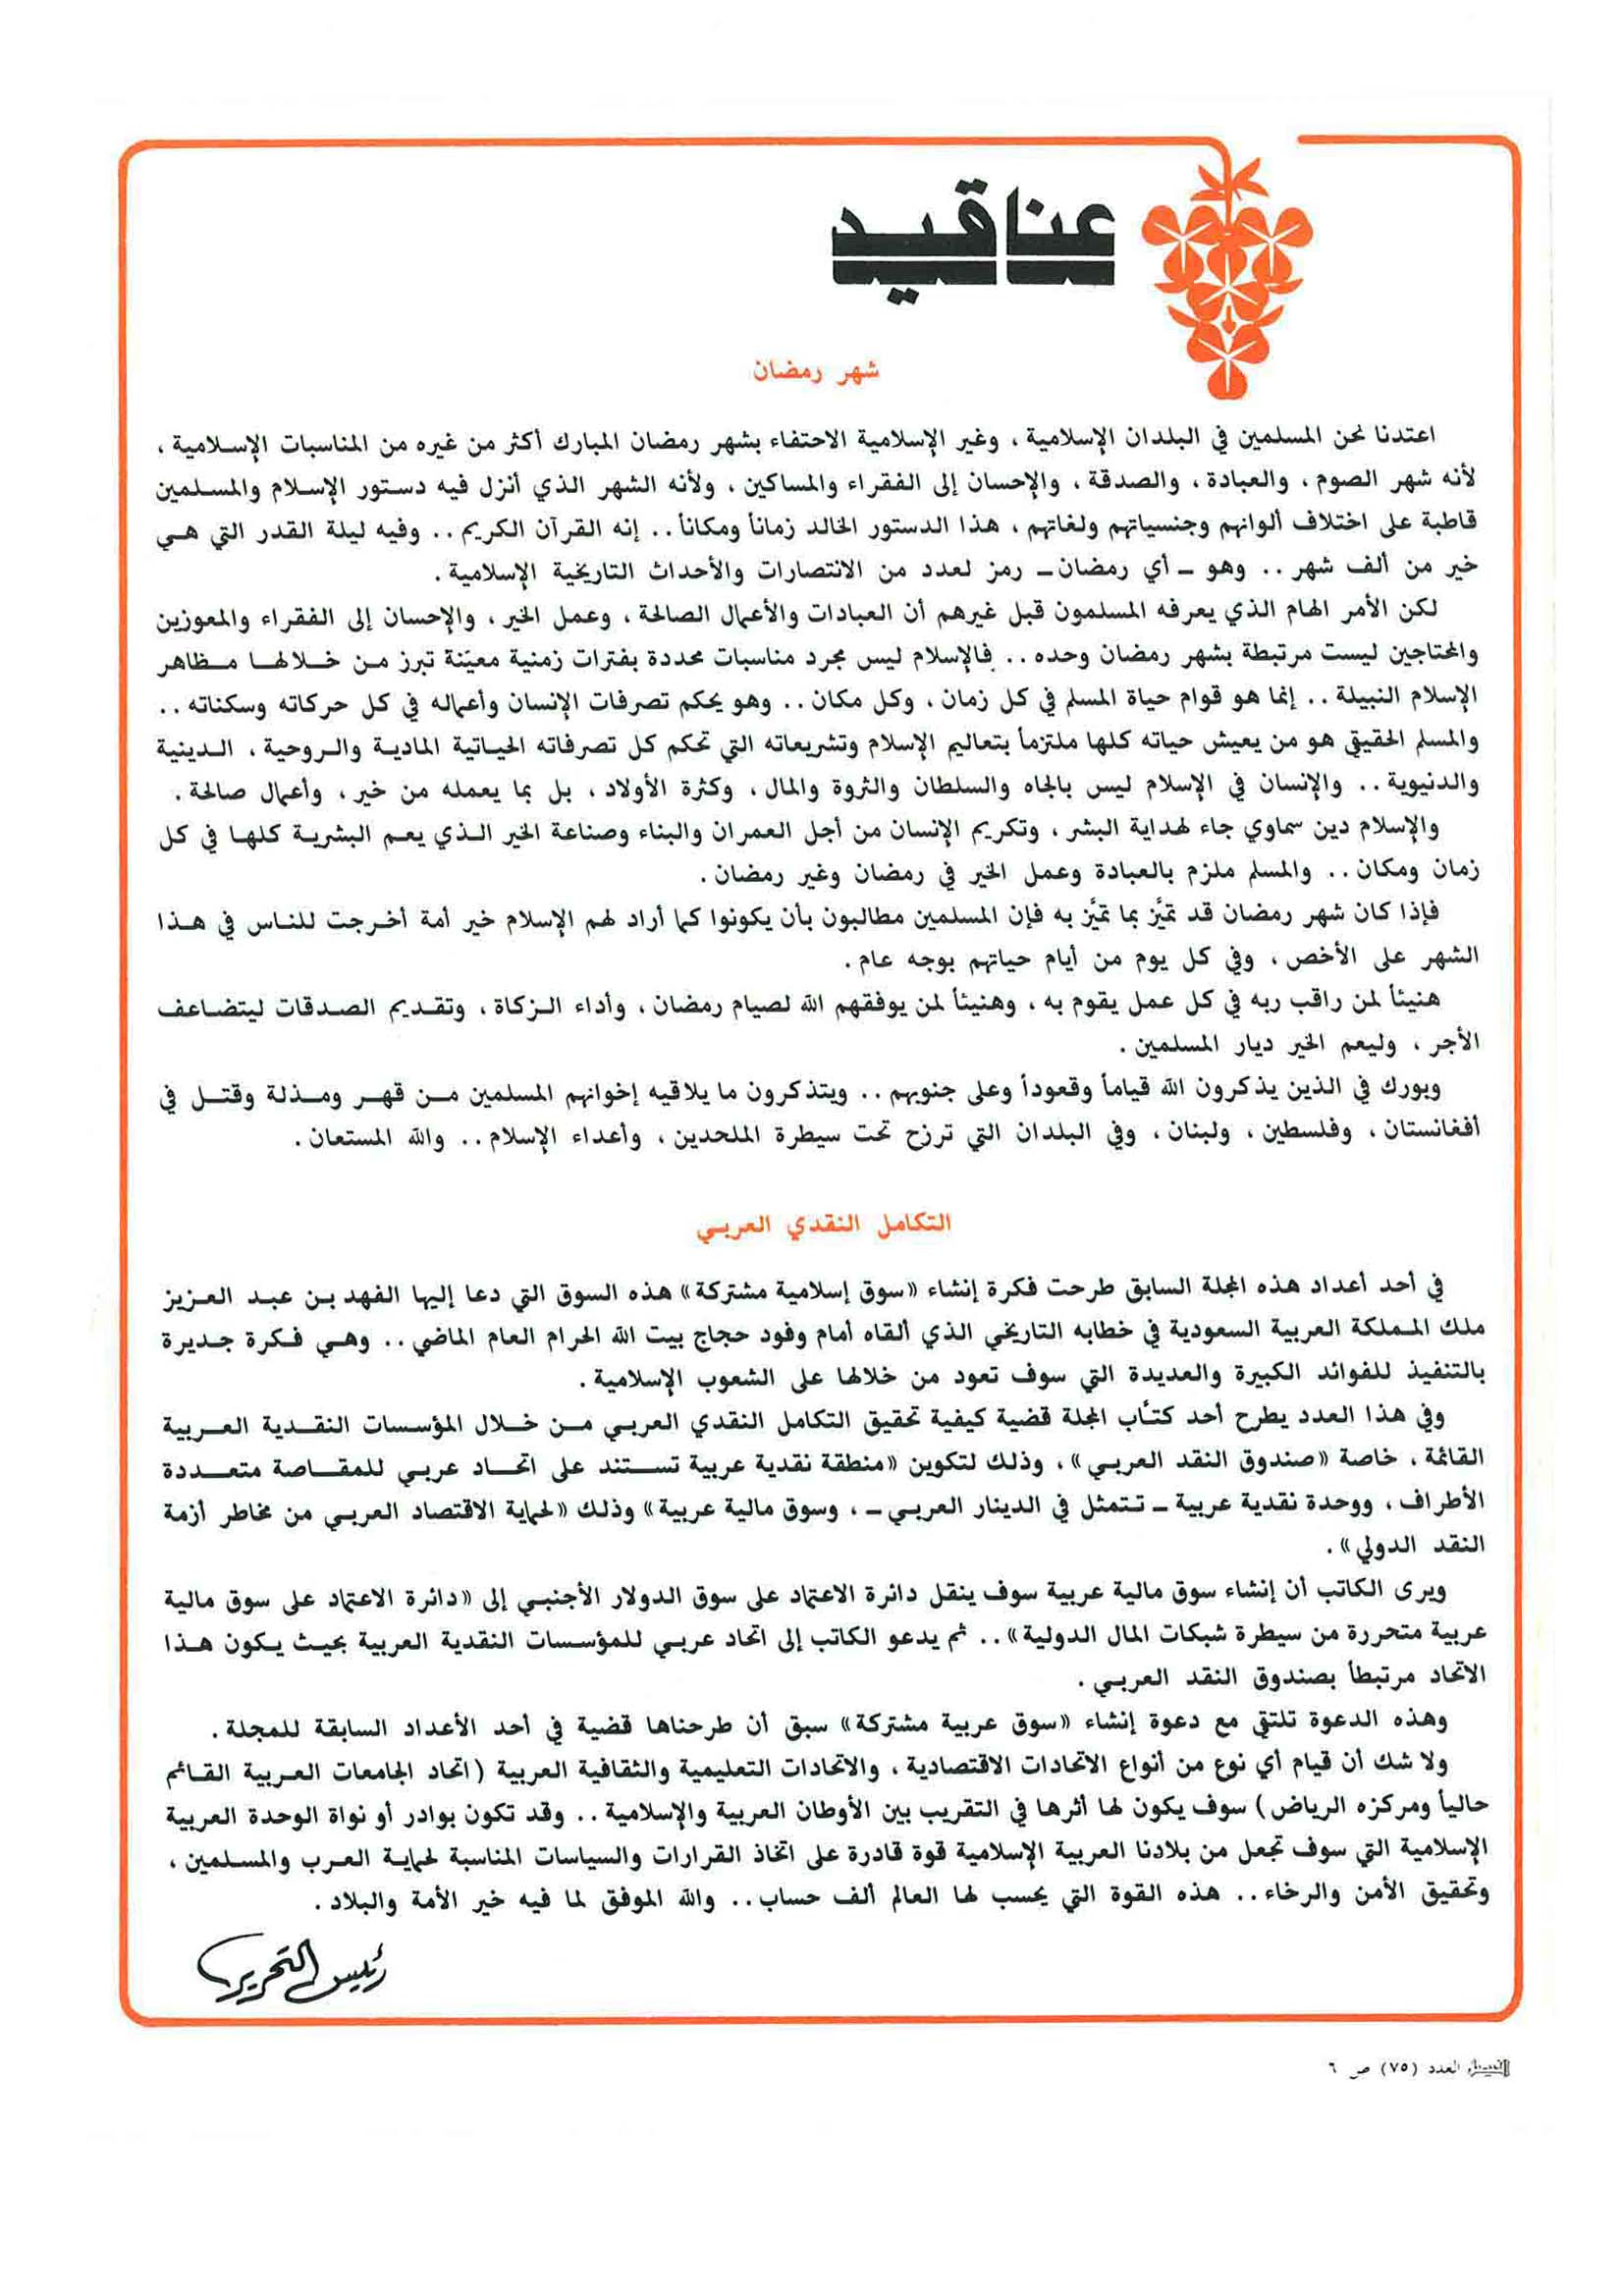 عناقيد
شهر رمضان
اعتدنا نحن المسلمين في البلدان الإسلامية ، وغير الإسلامية الاحتفاء بشهر رمضان المبارك أكثر من غيره من المناسبات الإسلامية ،
لأنه شهر الصوم ، والعبادة ، والصدقة ، والإحسان إلى الفقراء والمساكين ، ولأنه الشهر الذي أنزل فيه دستور الإسلام والمسلمين
قاطبة على اختلاف ألوانهم وجنسياتهم ولغاتهم ، هذا الدستور الخالد زماناً ومكاناً .. إنه القرآن الكريم .. وفيه ليلة القدر التي هي
خير من ألف شهر .. وهو ـ أي رمضان ـ رمز لعدد من الانتصارات والأحداث التاريخية الإسلامية .
لكن الأمر الهام الذي يعرفه المسلمون قبل غيرهم أن العبادات والأعمال الصالحة ، وعمل الخير ، والإحسان إلى الفقراء والمعوزين
والمحتاجين ليست مرتبطة بشهر رمضان وحده .. فالإسلام ليس مجرد مناسبات محددة بفترات زمنية معيّنة تبرز من خلالها مظاهر
الإسلام النبيلة .. إنما هو قوام حياة المسلم في كل زمان ، وكل مكان .. وهو يحكم تصرفات الإنسان وأعماله في كل حركاته وسكناته ..
والمسلم الحقيقي هو من يعيش حياته كلها ملتزماً بتعاليم الإسلام وتشريعاته التي تحكم كل تصرفاته الحياتية المادية والروحية ، الدينية
والدنيوية .. والإنسان في الإسلام ليس بالجاه والسلطان والثروة والمال ، وكثرة الأولاد ، بل بما يعمله من خير ، وأعمال صالحة .
والإسلام دين سماوي جاء لهداية البشر ، وتكريم الإنسان من أجل العمران والبناء وصناعة الخير الذي يعم البشرية كلها في كل
زمان ومكان .. والمسلم ملزم بالعبادة وعمل الخير في رمضان وغير رمضان .
فإذا كان شهر رمضان قد تميَّز بما تميَّز به فإن المسلمين مطالبون بأن يكونوا كما أراد لهم الإسلام خير أمة أخرجت للناس في هذا
الشهر على الأخص ، وفي كل يوم من أيام حياتهم بوجه عام .
هنيئاً لمن راقب ربه في كل عمل يقوم به ، وهنيئاً لمن يوفقهم الله لصيام رمضان ، وأداء الزكاة ، وتقديم الصدقات ليتضاعف
الأجر ، وليعم الخير ديار المسلمين .
وبورك في الذين يذكرون الله قياماً وقعوداً وعلى جنوبهم .. ويتذكرون ما يلاقيه إخوانهم المسلمين من قهر ومذلة وقتل في
أفغانستان ، وفلسطين ، ولبنان ، وفي البلدان التي ترزح تحت سيطرة الملحدين ، وأعداء الإسلام .. والله المستعان .
التكامل النقدي العربي
في أحد أعداد هذه المجلة السابق طرحت فكرة إنشاء «سوق إسلامية مشتركة» هذه السوق التي دعا إليها الفهد بن عبد العزيز
ملك المملكة العربية السعودية في خطابه التاريخي الذي ألقاه أمام وفود حجاج بيت الله الحرام العام الماضي .. وهي فكرة جديرة
بالتنفيذ للفوائد الكبيرة والعديدة التي سوف تعود من خلالها على الشعوب الإسلامية .
وفي هذا العدد يطرح أحد كتاب المجلة قضية كيفية تحقيق التكامل النقدي العربي من خلال المؤسسات النقدية العربية
القائمة ، خاصة «صندوق النقد العربي» ، وذلك لتكوين «منطقة نقدية عربية تستند على اتحاد عربي للمقاصة متعددة
الأطراف ، ووحدة نقدية عربية ـ تتمثل في الدينار العربي ـ ، وسوق مالية عربية» وذلك «لحماية الاقتصاد العربي من مخاطر أزمة
النقد الدولي» .
ويرى الكاتب أن إنشاء سوق مالية عربية سوف ينقل دائرة الاعتماد على سوق الدولار الأجنبي إلى «دائرة الاعتماد على سوق مالية
عربية متحررة من سيطرة شبكات المال الدولية» .. ثم يدعو الكاتب إلى اتحاد عربي للمؤسسات النقدية العربية بحيث يكون هذا
الاتحاد مرتبطاً بصندوق النقد العربي .
وهذه الدعوة تلتقي مع دعوة إنشاء «سوق عربية مشتركة» سبق أن طرحناها قضية في أحد الأعداد السابقة للمجلة .
ولا شك أن قيام أي نوع من أنواع الاتحادات الاقتصادية ، والاتحادات التعليمية والثقافية العربية (اتحاد الجامعات العربية القائم
حالياً ومركزه الرياض) سوف يكون لها أثرها في التقريب بين الأوطان العربية والإسلامية .. وقد تكون بوادر أو نواة الوحدة العربية
الإسلامية التي سوف تجعل من بلادنا العربية الإسلامية قوة قادرة على اتخاذ القرارات والسياسات المناسبة لحماية العرب والمسلمين ،
وتحقيق الأمن والرخاء .. هذه القوة التي يحسب لها العالم ألف حساب .. والله الموفق لما فيه خير الأمة والبلاد .
رئيس التحرير
الفيصل العدد (٧٥) ص ٦